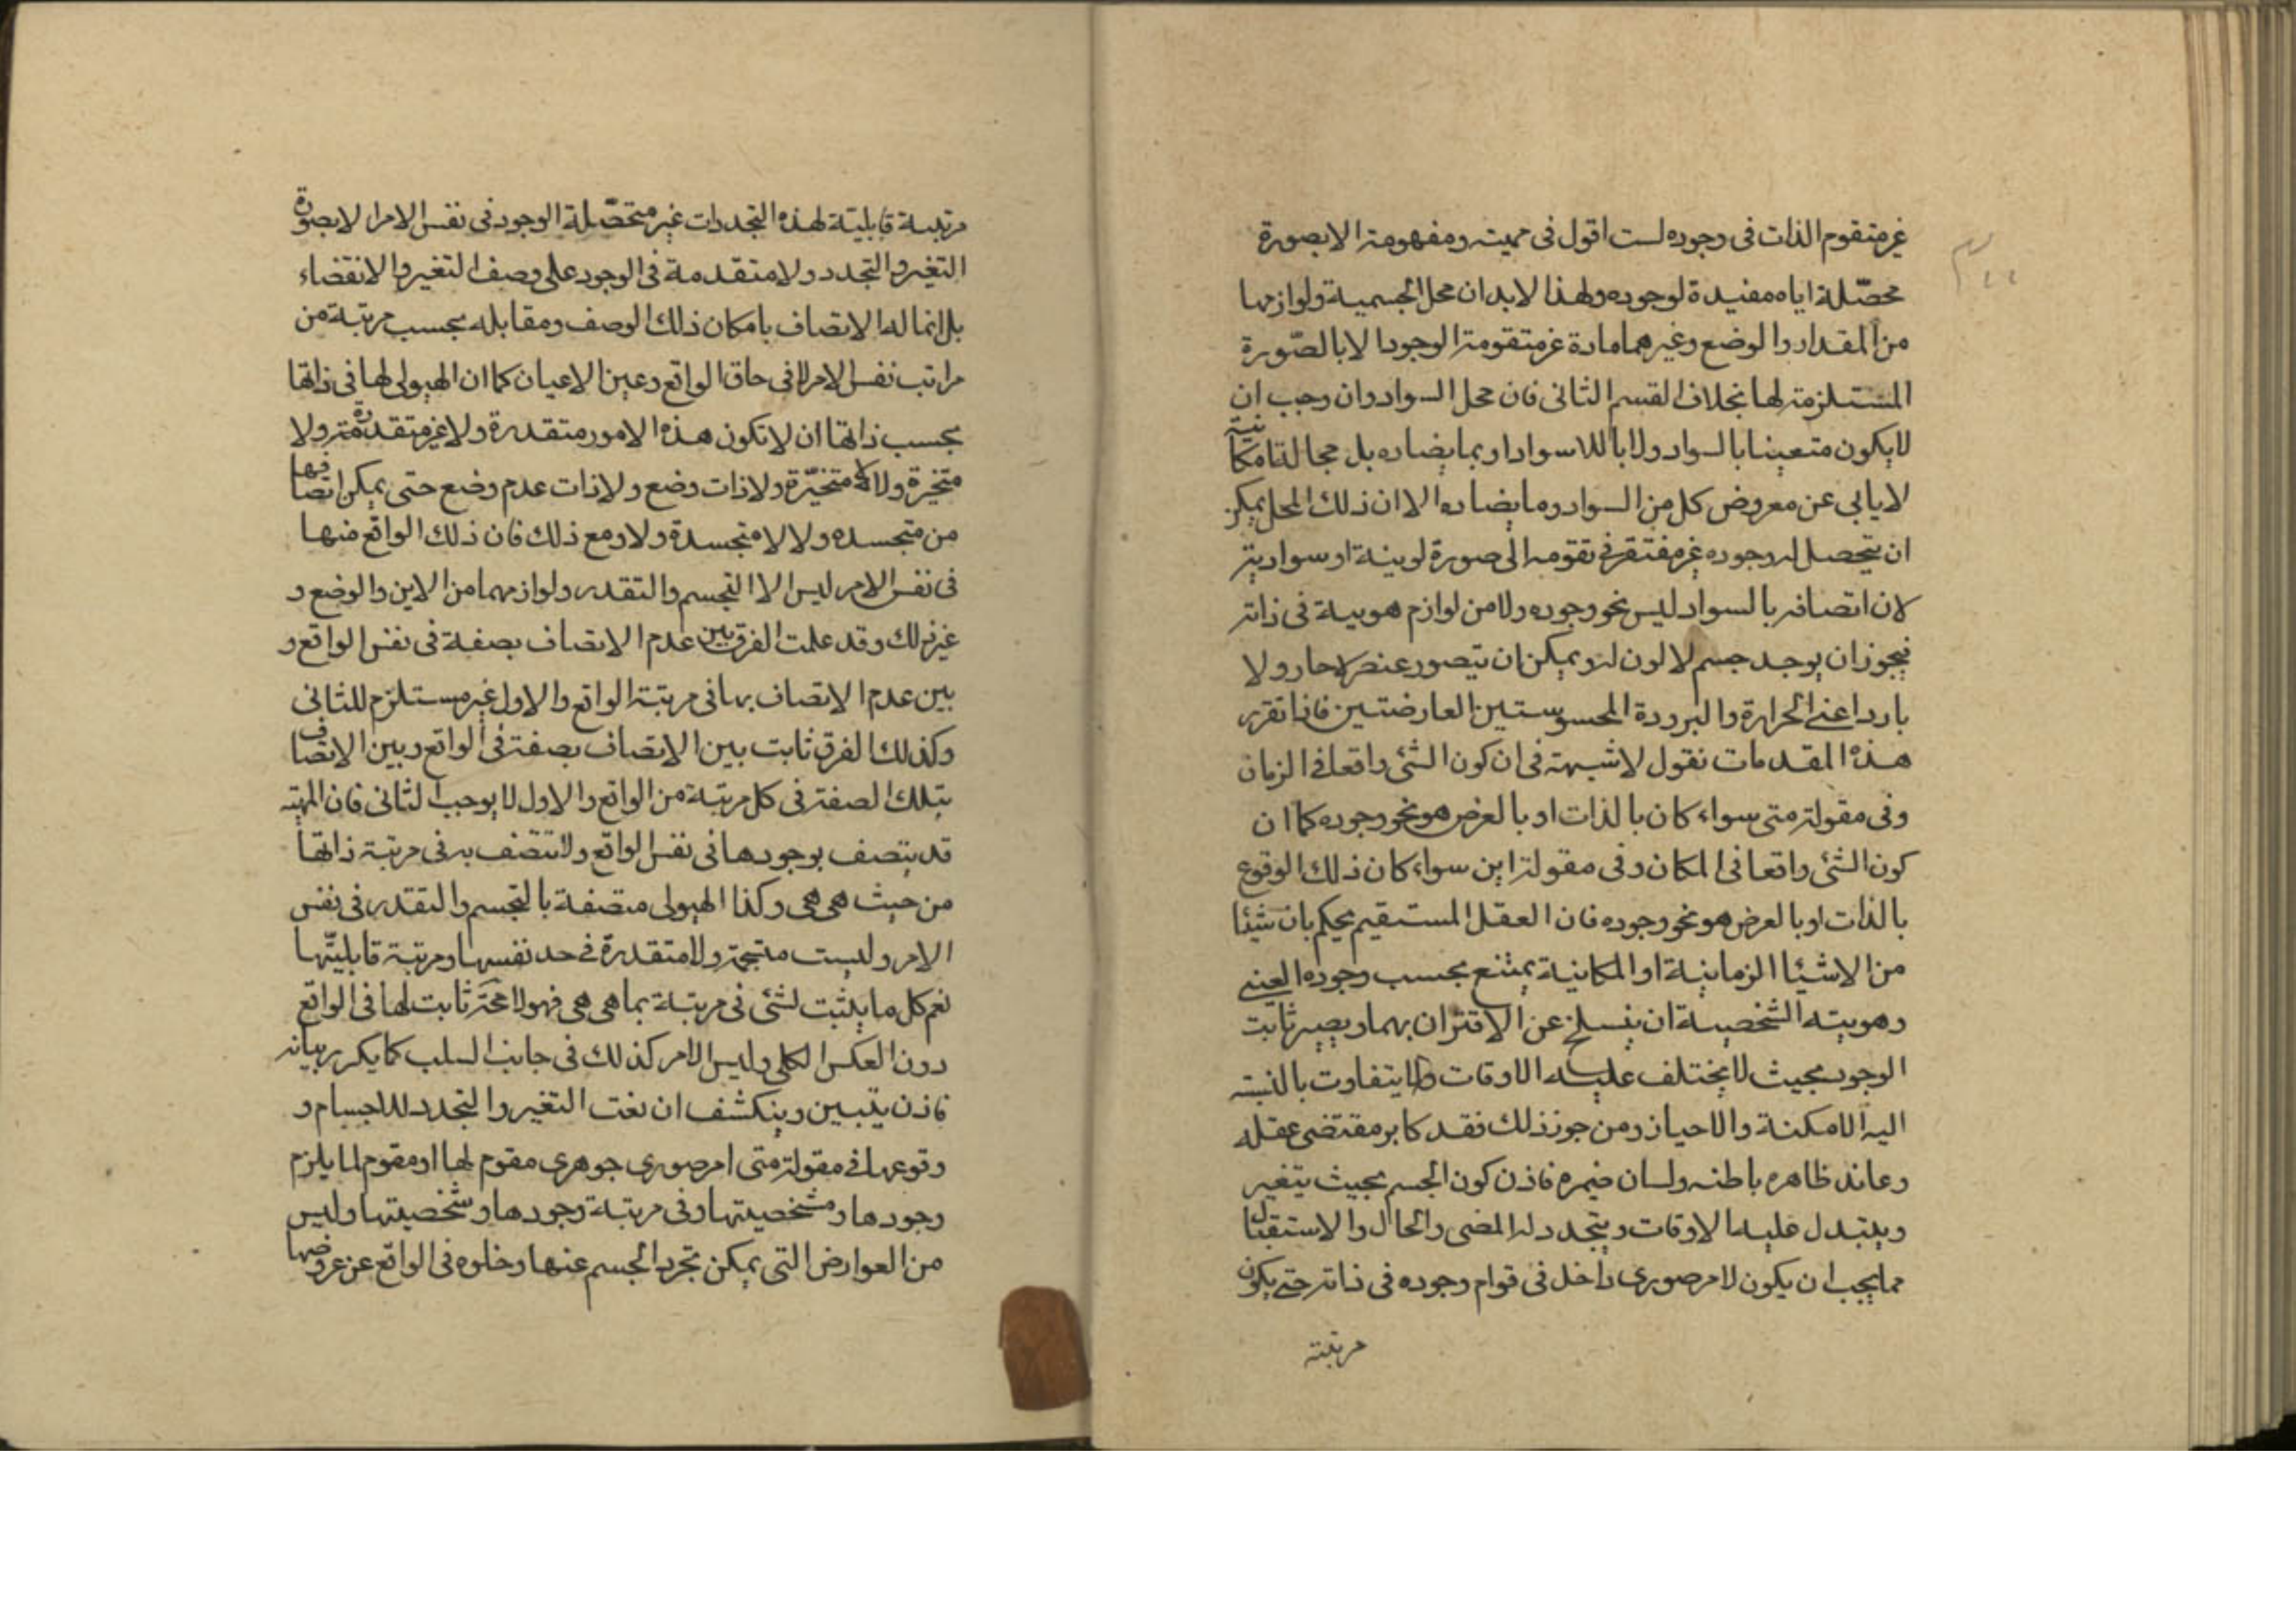 غير متقوم الذات فى وجوده لست اقول فى مهيته ومفهومه الا بصورة
محصّلة اياه مفيدة لوجوده ولهذا لابد ان محل الجسمية ولوازمها
من المقدار والوضع وغيرهما مادة غير متقومة الوجود الا بالصّورة
المستلزمة لها بخلاف القسم الثانى فان محل السواد وان وجب ان
لا يكون متعينا بالسواد ولا باللاسواد او بما يضاده بل بحالة امكانية
لا يابى عن معروض كل من السواد وما يضاده الا ان ذلك المحل يمكن
ان يتحصل له وجوده غير مفتقر فى تقومه الى صورة لونية او سوادية
لان اتصافه بالسواد ليس نحو وجوده ولا من لوازم هويته فى ذاته
فيجوز ان يوجد جسم لا لون له ويمكن ان يتصور عنصر لا حار ولا
بارد اعنى الحرارة والبرودة المحسوستين العارضتين فاذا تقرر
هذه المقدمات نقول لا شبهة فى ان كون الشئ واقعا فى الزمان
وفى مقولة متى سواء كان بالذات او بالعرض هو نحو وجوده كما ان
كون الشئ واقعا فى المكان وفى مقولة اين سواء كان ذلك الوقوع
بالذات او بالعرض هو نحو وجوده فان العقل المستقيم يحكم بان شيئا
من الاشيا الزمانية او المكانية يمتنع بحسب وجوده العينى
وهويته الشخصية ان ينسلخ عن الاقتران بهما ويصير ثابت
الوجود بحيث لا يختلف عليه الاوقات ولا يتفاوت بالنسبة
اليه الامكنة والاحياز ومن جوز ذلك فقد كابر مقتضى عقله
وعاند ظاهره باطنه ولسان ضميره فاذن كون الجسم بحيث يتغير
ويتبدل عليه الاوقات ويتجدد له المضى والحال والاستقبال
مما يجب ان يكون لامر صورى داخل فى قوام وجوده فى ذاته حتى يكون
مرتبة
مرتبة قابلية لهذه التجددات غير متحصّلة الوجود فى نفس الامر الا بصورة
التغير والتجدد ولا متقدمة فى الوجود على وصف التغير والانقضاء
بل انما له الاتصاف بامكان ذلك الوصف ومقابله بحسب مرتبة من
مراتب نفس الامر لا فى حاق الواقع وعين الاعيان كما ان الهيولى لها فى ذاتها
بحسب ذاتها ان لا تكون هذه الامور متقدرة ولا غير متقدرة ولا
متحيزة ولا لا متحيّزة ولا ذات وضع ولا ذات عدم وضع حتى يمكن اتصافها
من متجسده ولا لا متجسدة ولا ومع ذلك فان ذلك الواقع منها
فى نفس الامر ليس الا التجسم والتقدر ولوازمهما من الاين والوضع و
غير ذلك وقد علمت الفرق بين عدم الاتصاف بصفة فى نفس الواقع و
بين عدم الاتصاف بها فى مرتبة الواقع والاول غير مستلزم للثانى
وكذلك الفرق ثابت بين الاتصاف بصفة فى الواقع وبين الاتصاف
بتلك الصفة فى كل مرتبة من الواقع والاول لا يوجب الثانى فان المهية
قد يتصف بوجودها فى نفس الواقع ولا تتصف به فى مرتبة ذاتها
من حيث هى هى وكذا الهيولى متصفة بالتجسم والتقدر فى نفس
الامر وليست متجسمة ولا متقدرة فى حد نفسها ومرتبة قابليّتها
نعم كل ما يثبت لشئ فى مرتبة بما هى هى فهو لا محة ثابت لها فى الواقع
دون العكس الكلى وليس الامر كذلك فى جانب السلب كما يكرر بيانه
فاذن يتبين وينكشف ان نعت التغير والتجدد للاجسام و
وقوعها فى مقولة متى امر صورى جوهرى مقوم لها او مقوم لما يلزم
وجودها ومشخصيتها وفى مرتبة وجودها وشخصيتها وليس
من العوارض التى يمكن تجرد الجسم عنها وخلوه فى الواقع عن عروضها